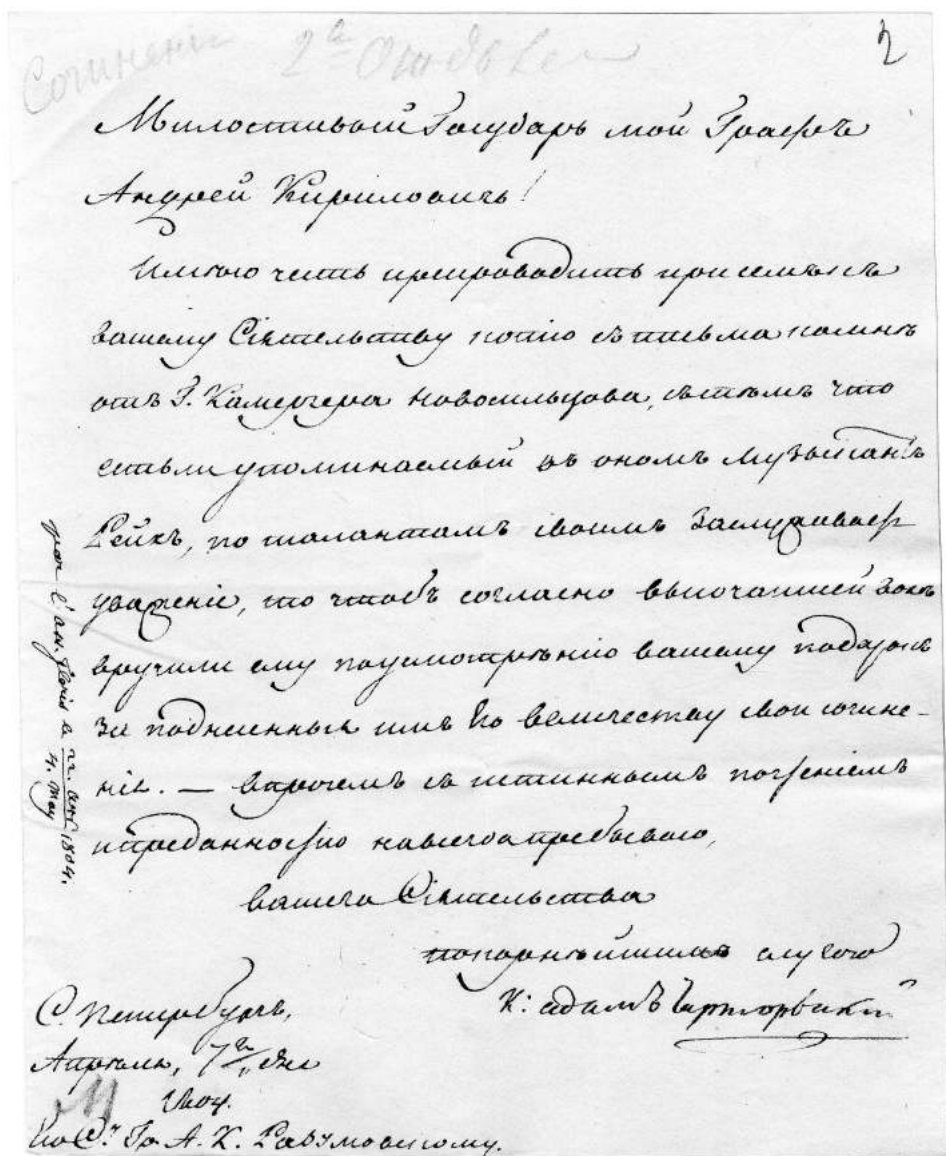 Сочинені 2а Отдѣлен
2
Милостивый Государь мой Графъ
Андрей Кириловичь!
Имѣю честь препроводить при семъ къ
вашему Сіятельству копію съ письма комнѣ
отъ Г. Камергера Новосильцова, стѣмъ что
естьли упоминаемый въ ономъ Музыкантъ
Рейхъ, по талантамъ своимъ заслуживаетъ
уваженіе, то чтобъ согласно высочайшей волѣ
вручили ему поусмотренію вашему подарокъ
за поднесенныя имъ Его величеству свои сочине-
нія. — впрочемъ съ истиннымъ почтеніемъ
ипреданностію навсегда пребываю,
вашего Сіятельства
покорнѣйшимъ слугою
К: адамъ Чарторыскій
С. Петербургъ,
Апрѣля, 7го дня
1804.
Его Сву Гр. А. К. Разумовскому.
22. avr 1804.
4. may